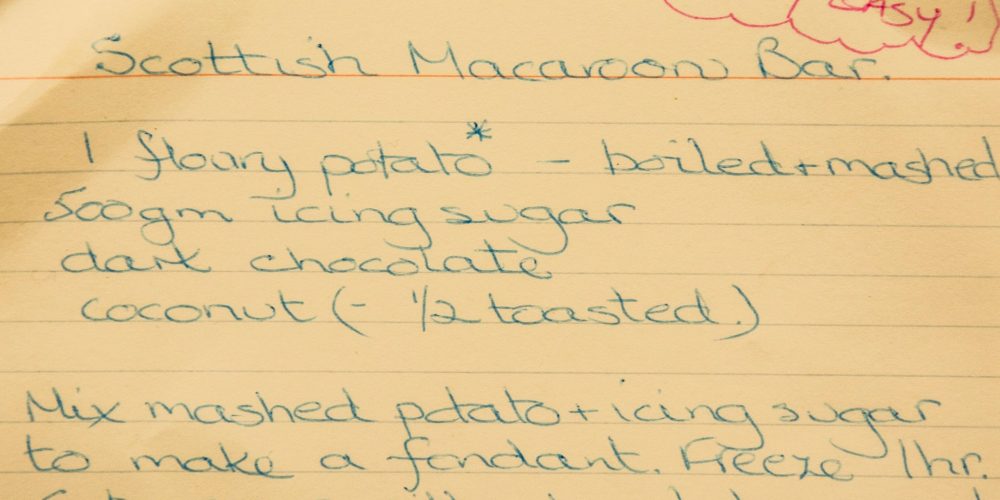 EASY!
Scottish Macaroon Bar.
1 floury potato* - boiled+mashed
500gm icing sugar
dark chocolate
coconut (- 1/2 toasted.)
Mix mashed potato + icing sugar
to make a fondant. Freeze 1hr.